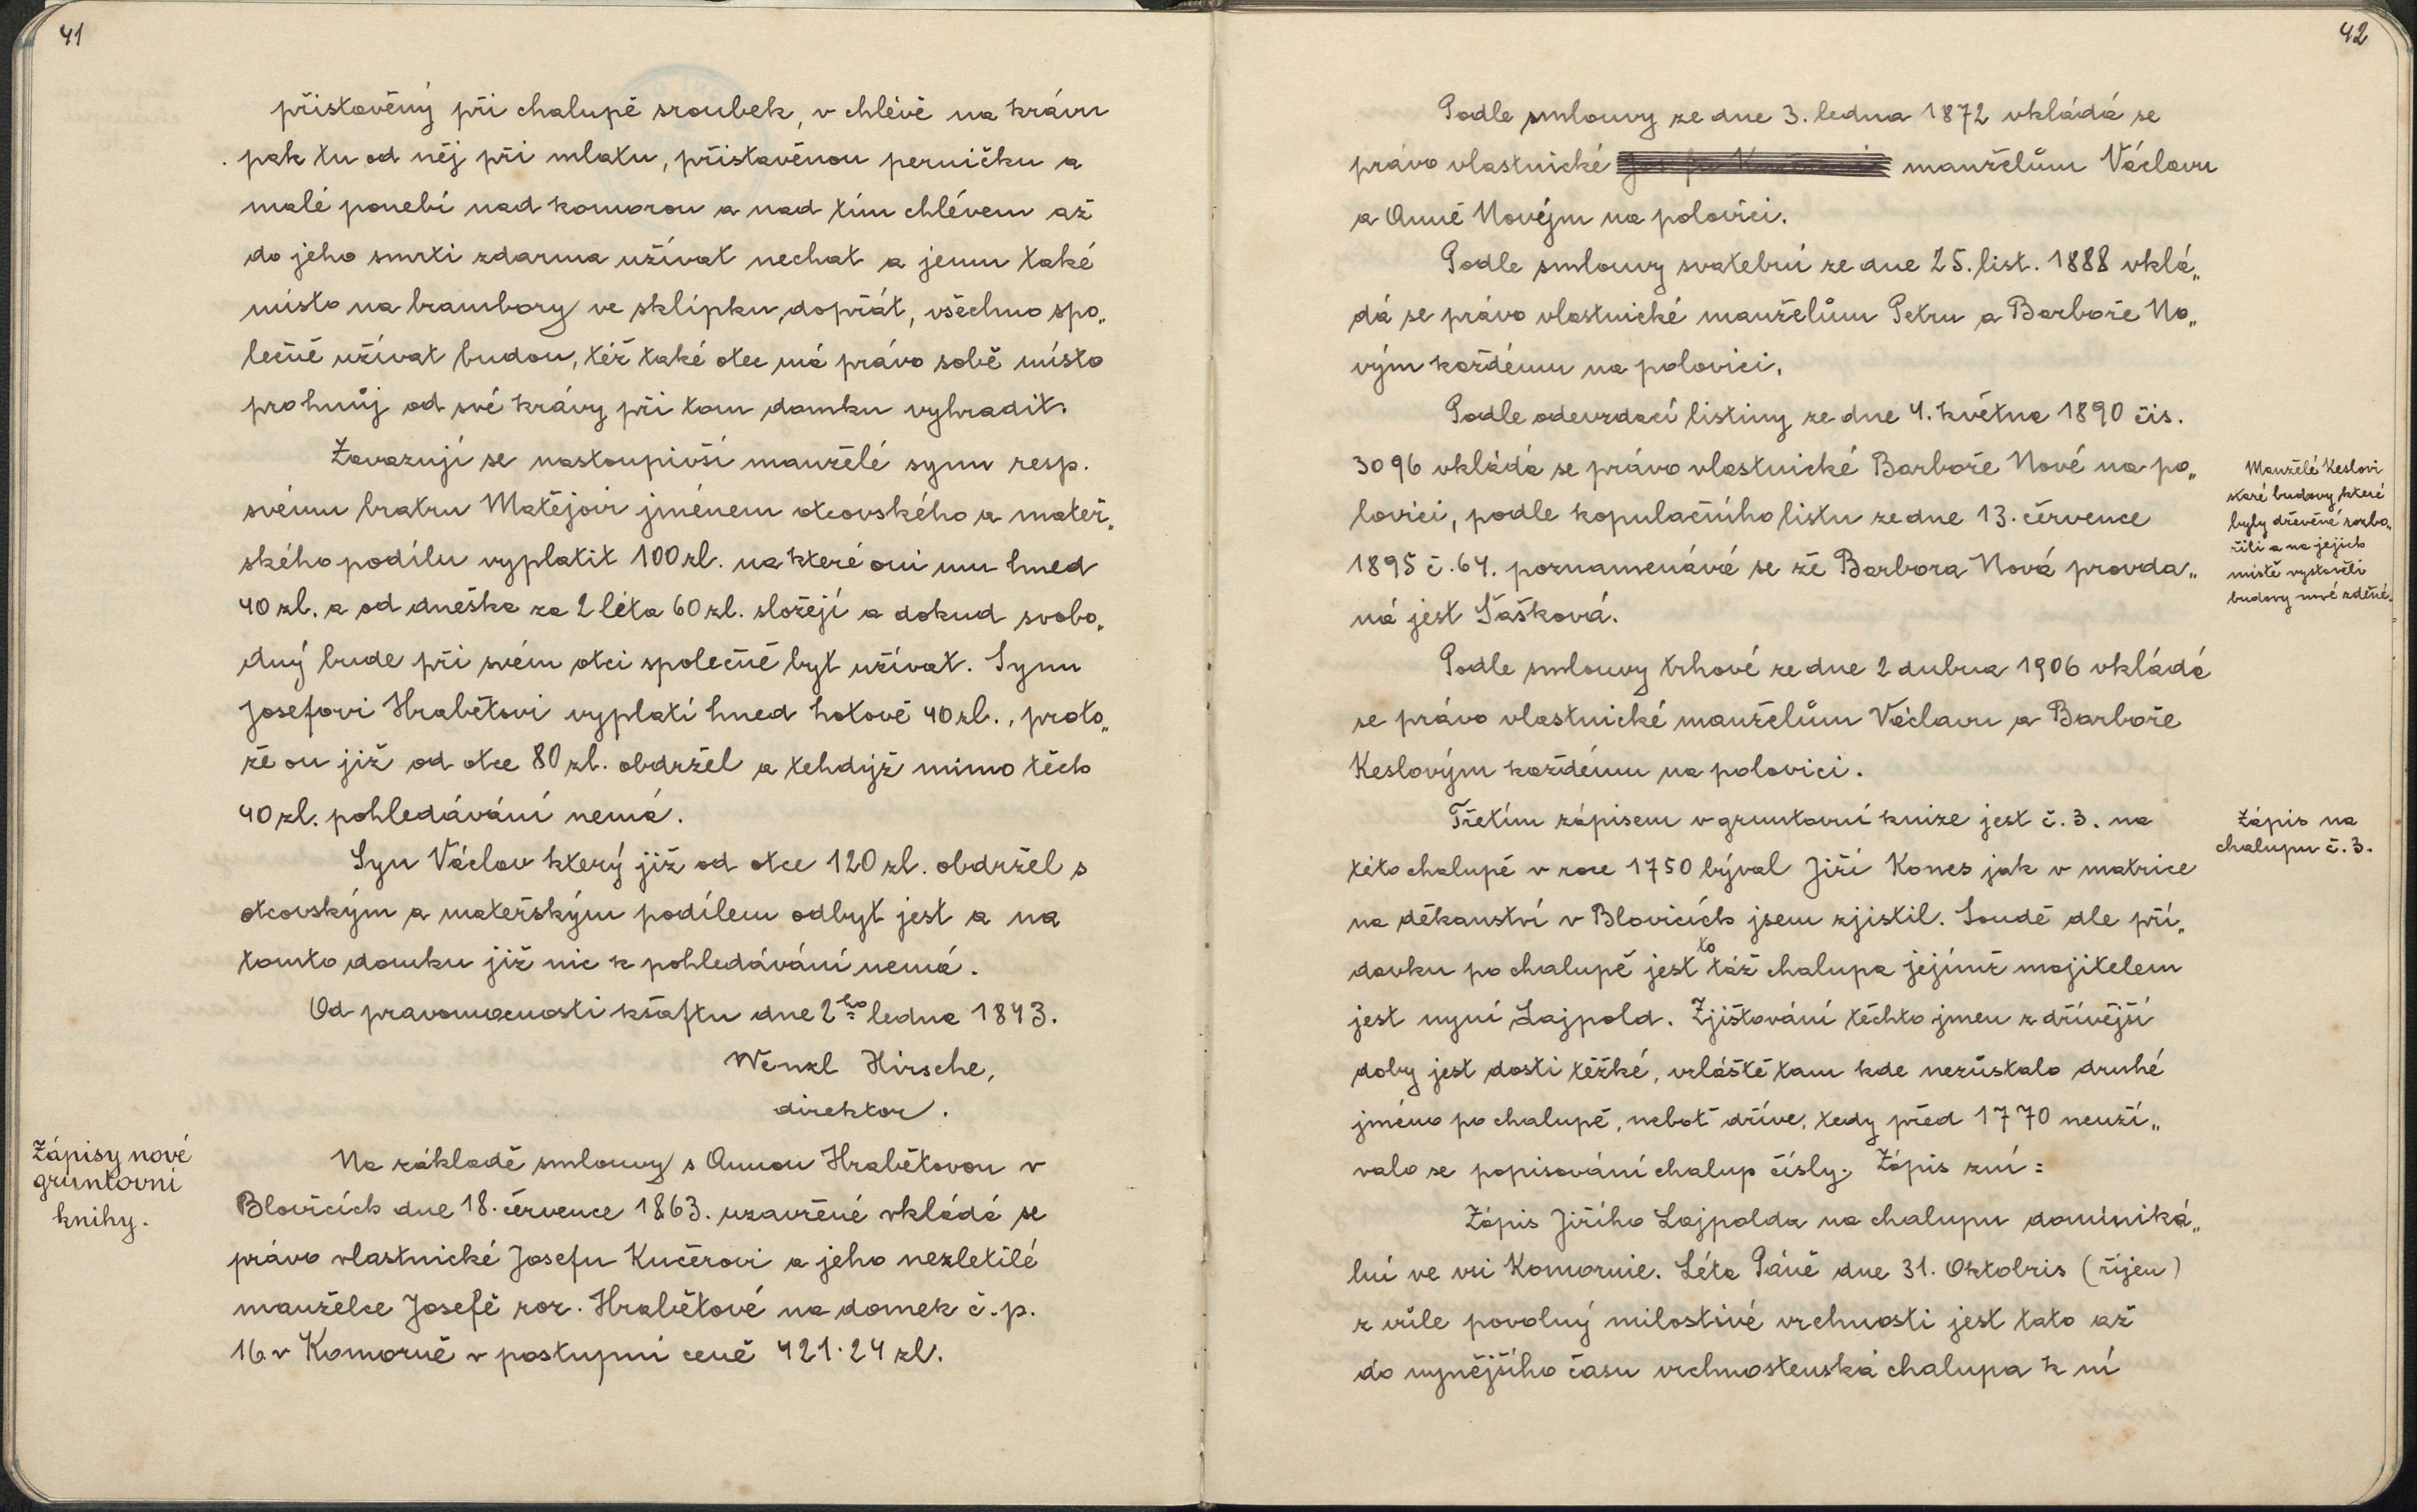 41
přistavěný při chalupě sroubek, v chlévě na krávu
pak tu od něj při mlatu, přistavěnou perničku a
malé ponebí nad komorou a nad tím chlévem až
do jeho smrti zdarma užívat nechat a jemu také
místo na brambory ve sklípku dopřát, všechno spo„
lečně užívat budou, též také otec má právo sobě místo
pro hnůj od své krávy při tom domku vyhradit.
Zavazují se nastoupivší manželé synu resp.
svému bratru Matějovi jménem otcovského a mateř„
ského podílu vyplatit 100 zl. na které oni mu hned
40 zl. a od dneška za 2 léta 60 zl. složejí a dokud svobo„
dný bude při svém otci společně byt užívat. Synu
Josefovi Hrabětovi vyplatí hned hotově 40 zl., proto„
že on již od otce 80 zl. obdržel a tehdýž mimo těch
40 zl. pohledávání nemá.
Syn Václav který již od otce 120 zl. obdržel s
otcovským a mateřským podílem odbyt jest a na
tomto domku již nic k pohledávání nemá.
Od pravomocnosti kšaftu dne 2ho ledna 1843.
Wenzl Hirsche,
direktor.
Zápisy nové
gruntovní
knihy.
Na základě smlouvy s Annou Hrabětovou v
Blovicích dne 18. července 1863. uzavřené vkládá se
právo vlastnické Josefu Kučerovi a jeho nezletilé
manželce Josefě roz. Hrabětové na domek č. p.
16 v Komorně v postupní ceně 421·24 zl.
42
Podle smlouvy ze dne 3. ledna 1872 vkládá se
právo vlastnické manželům Václavu
a Anně Novým na polovici.
Podle smlouvy svatební ze dne 25. list. 1888 vklá„
dá se právo vlastnické manželům Petru a Barboře No„
vým každému na polovici.
Podle odevzdací listiny ze dne 4. května 1890 čís.
3096 vkládá se právo vlastnické Barboře Nové na po„
lovici, podle kopulačního listu ze dne 13. července
1895 č. 64. poznamenává se že Barbora Nová provda„
ná jest Šašková.
Manželé Keslovi
staré budovy které
byly dřevěné rozbo„
řili a na jejich
místě vystavěli
budovy nové zděné.
Podle smlouvy trhové ze dne 2 dubna 1906 vkládá
se právo vlastnické manželům Václavu a Barboře
Keslovým každému na polovici.
Třetím zápisem v gruntovní knize jest č. 3. na
této chalupě v roce 1750 býval Jiří Kones jak v matrice
na děkanství v Blovicích jsem zjistil. Soudě dle pří„
davku po chalupě jest to táž chalupa jejímž majitelem
jest nyní Lajpold. Zjišťování těchto jmen z dřívější
doby jest dosti těžké, vzláště tam kde nezůstalo druhé
jméno po chalupě, neboť dříve, tedy před 1770 neuží„
valo se popisování chalup čísly. Zápis zní:
Zápis na
chalupu č. 3.
Zápis Jiřího Lajpolda na chalupu dominiká„
lní ve vsi Komornie. Léta Páně dne 31. Oktobris (říjen)
z vůle povolný milostivé vrchnosti jest tato až
do nynějšího času vrchnostenská chalupa k ní